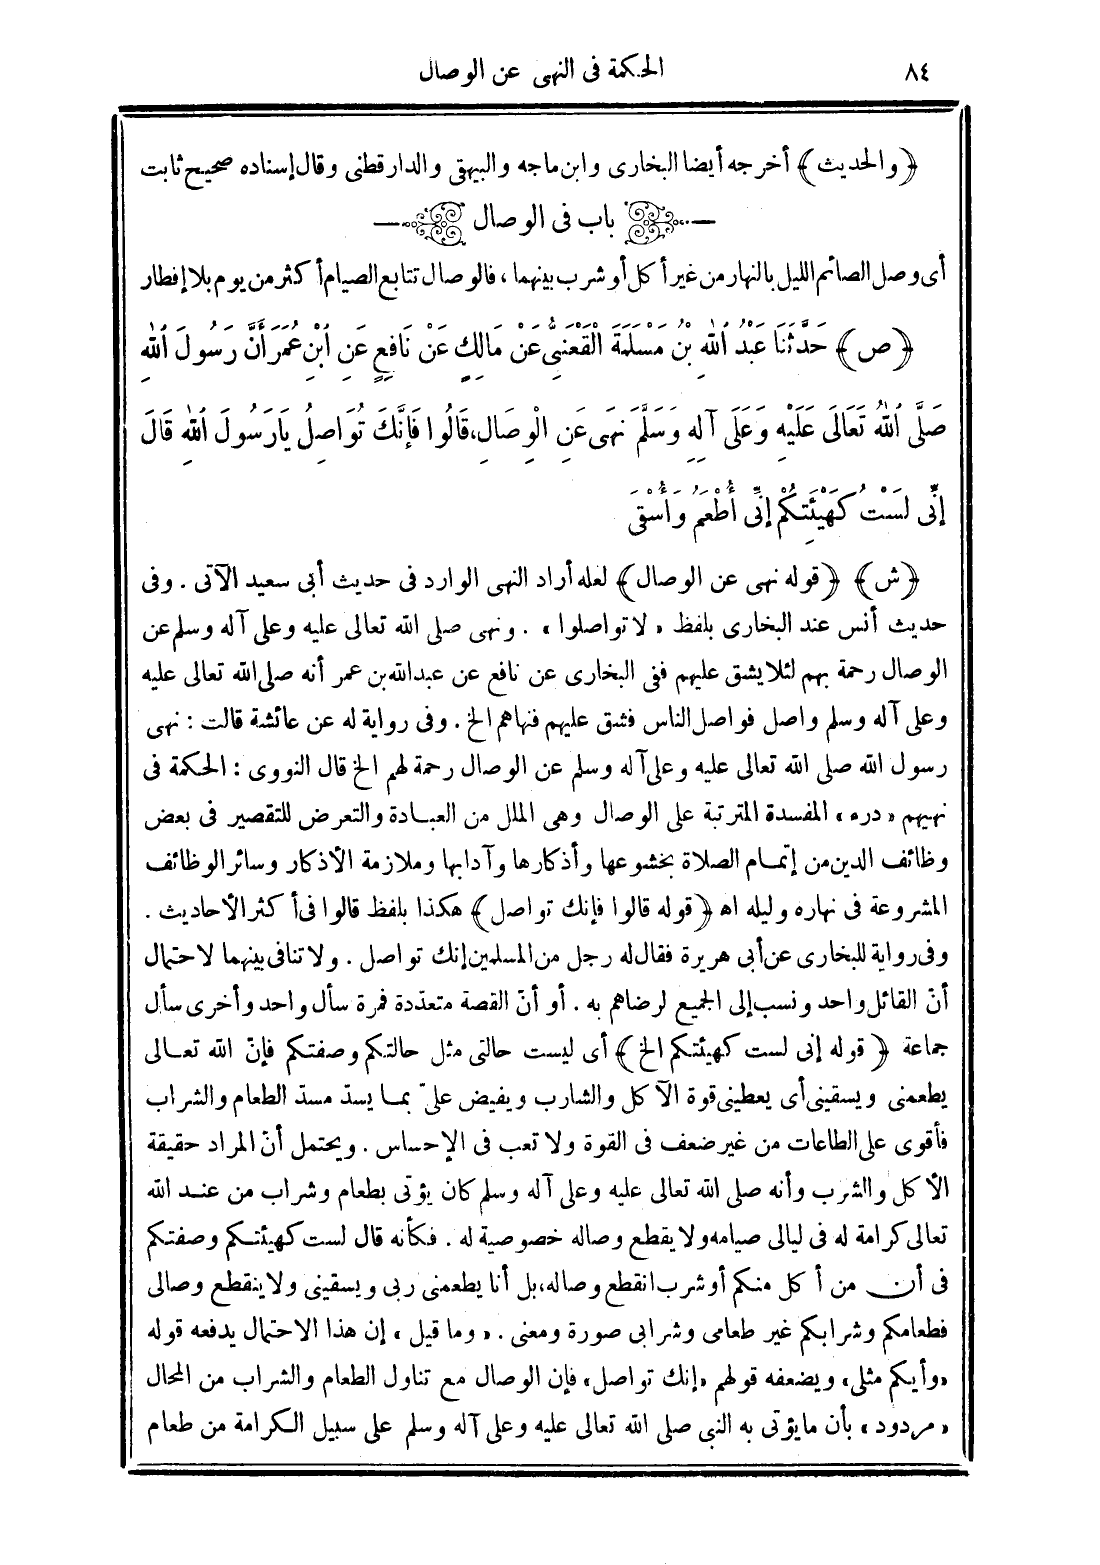 ٨٤ الحكمة فى النهى عن الوصال
﴿والحديث﴾ أخرجه أيضا البخارى وابن ماجه والبيهقى والدارقطنى وقال إسناده صحيح ثابت
باب فى الوصال
أى وصل الصائم الليل بالنهار من غير أكل أو شرب بينهما، فالوصال تتابع الصيام أكثر من يوم بلا إفطار
﴿ص﴾ حَدَّثَنَا عَبْدُ اللهِ بْنُ مَسْلَمَةَ الْقَعْنَبِىُّ عَنْ مَالِكٍ عَنْ نَافِعٍ عَنِ ابْنِ عُمَرَ أَنَّ رَسُولَ اللهِ
صَلَّى اللهُ تَعَالَى عَلَيْهِ وَعَلَى آلِهِ وَسَلَّمَ نَهَى عَنِ الْوِصَالِ، قَالُوا فَإِنَّكَ تُوَاصِلُ يَارَسُولَ اللهِ قَالَ
إِنِّى لَسْتُ كَهَيْئَتِكُمْ إِنِّى أُطْعَمُ وَأُسْقَى
﴿ش﴾ ﴿قوله نهى عن الوصال﴾ لعله أراد النهى الوارد فى حديث أبى سعيد الآتى . وفى
حديث أنس عند البخارى بلفظ «لا تواصلوا» . ونهى صلى الله تعالى عليه وعلى آله وسلم عن
الوصال رحمة بهم لئلا يشق عليهم ففى البخارى عن نافع عن عبدالله بن عمر أنه صلى الله تعالى عليه
وعلى آله وسلم واصل فواصل الناس فشق عليهم فنهاهم الخ . وفى رواية له عن عائشة قالت : نهى
رسول الله صلى الله تعالى عليه وعلى آله وسلم عن الوصال رحمة لهم الخ قال النووى : الحكمة فى
نهيهم «درء» المفسدة المترتبة على الوصال وهى الملل من العبادة والتعرض للتقصير فى بعض
وظائف الدين من إتمام الصلاة بخشوعها وأذكارها وآدابها وملازمة الأذكار وسائر الوظائف
المشروعة فى نهاره وليله اه ﴿قوله قالوا فإنك تواصل﴾ هكذا بلفظ قالوا فى أكثر الأحاديث .
وفى رواية للبخارى عن أبى هريرة فقال له رجل من المسلمين إنك تواصل . ولا تنافى بينهما لاحتمال
أنّ القائل واحد ونسب إلى الجميع لرضاهم به . أو أنّ القصة متعدّدة فمرة سأل واحد وأخرى سأل
جماعة ﴿قوله إنى لست كهيئتكم الخ﴾ أى ليست حالتى مثل حالتكم وصفتكم فإنّ الله تعالى
يطعمنى ويسقينى أى يعطينى قوة الآكل والشارب ويفيض علىّ بما يسدّ مسدّ الطعام والشراب
فأقوى على الطاعات من غير ضعف فى القوة ولا تعب فى الإحساس . ويحتمل أنّ المراد حقيقة
الأكل والشرب وأنه صلى الله تعالى عليه وعلى آله وسلم كان يؤتى بطعام وشراب من عند الله
تعالى كرامة له فى ليالى صيامه ولا يقطع وصاله خصوصية له . فكأنه قال لست كهيئتكم وصفتكم
فى أن من أكل منكم أو شرب انقطع وصاله، بل أنا يطعمنى ربى ويسقينى ولا ينقطع وصالى
فطعامكم وشرابكم غير طعامى وشرابى صورة ومعنى . «وما قيل» إن هذا الاحتمال يدفعه قوله
«وأيكم مثلى» ويضعفه قولهم «إنك تواصل» فإن الوصال مع تناول الطعام والشراب من المحال
«مردود» بأن ما يؤتى به النبى صلى الله تعالى عليه وعلى آله وسلم على سبيل الكرامة من طعام